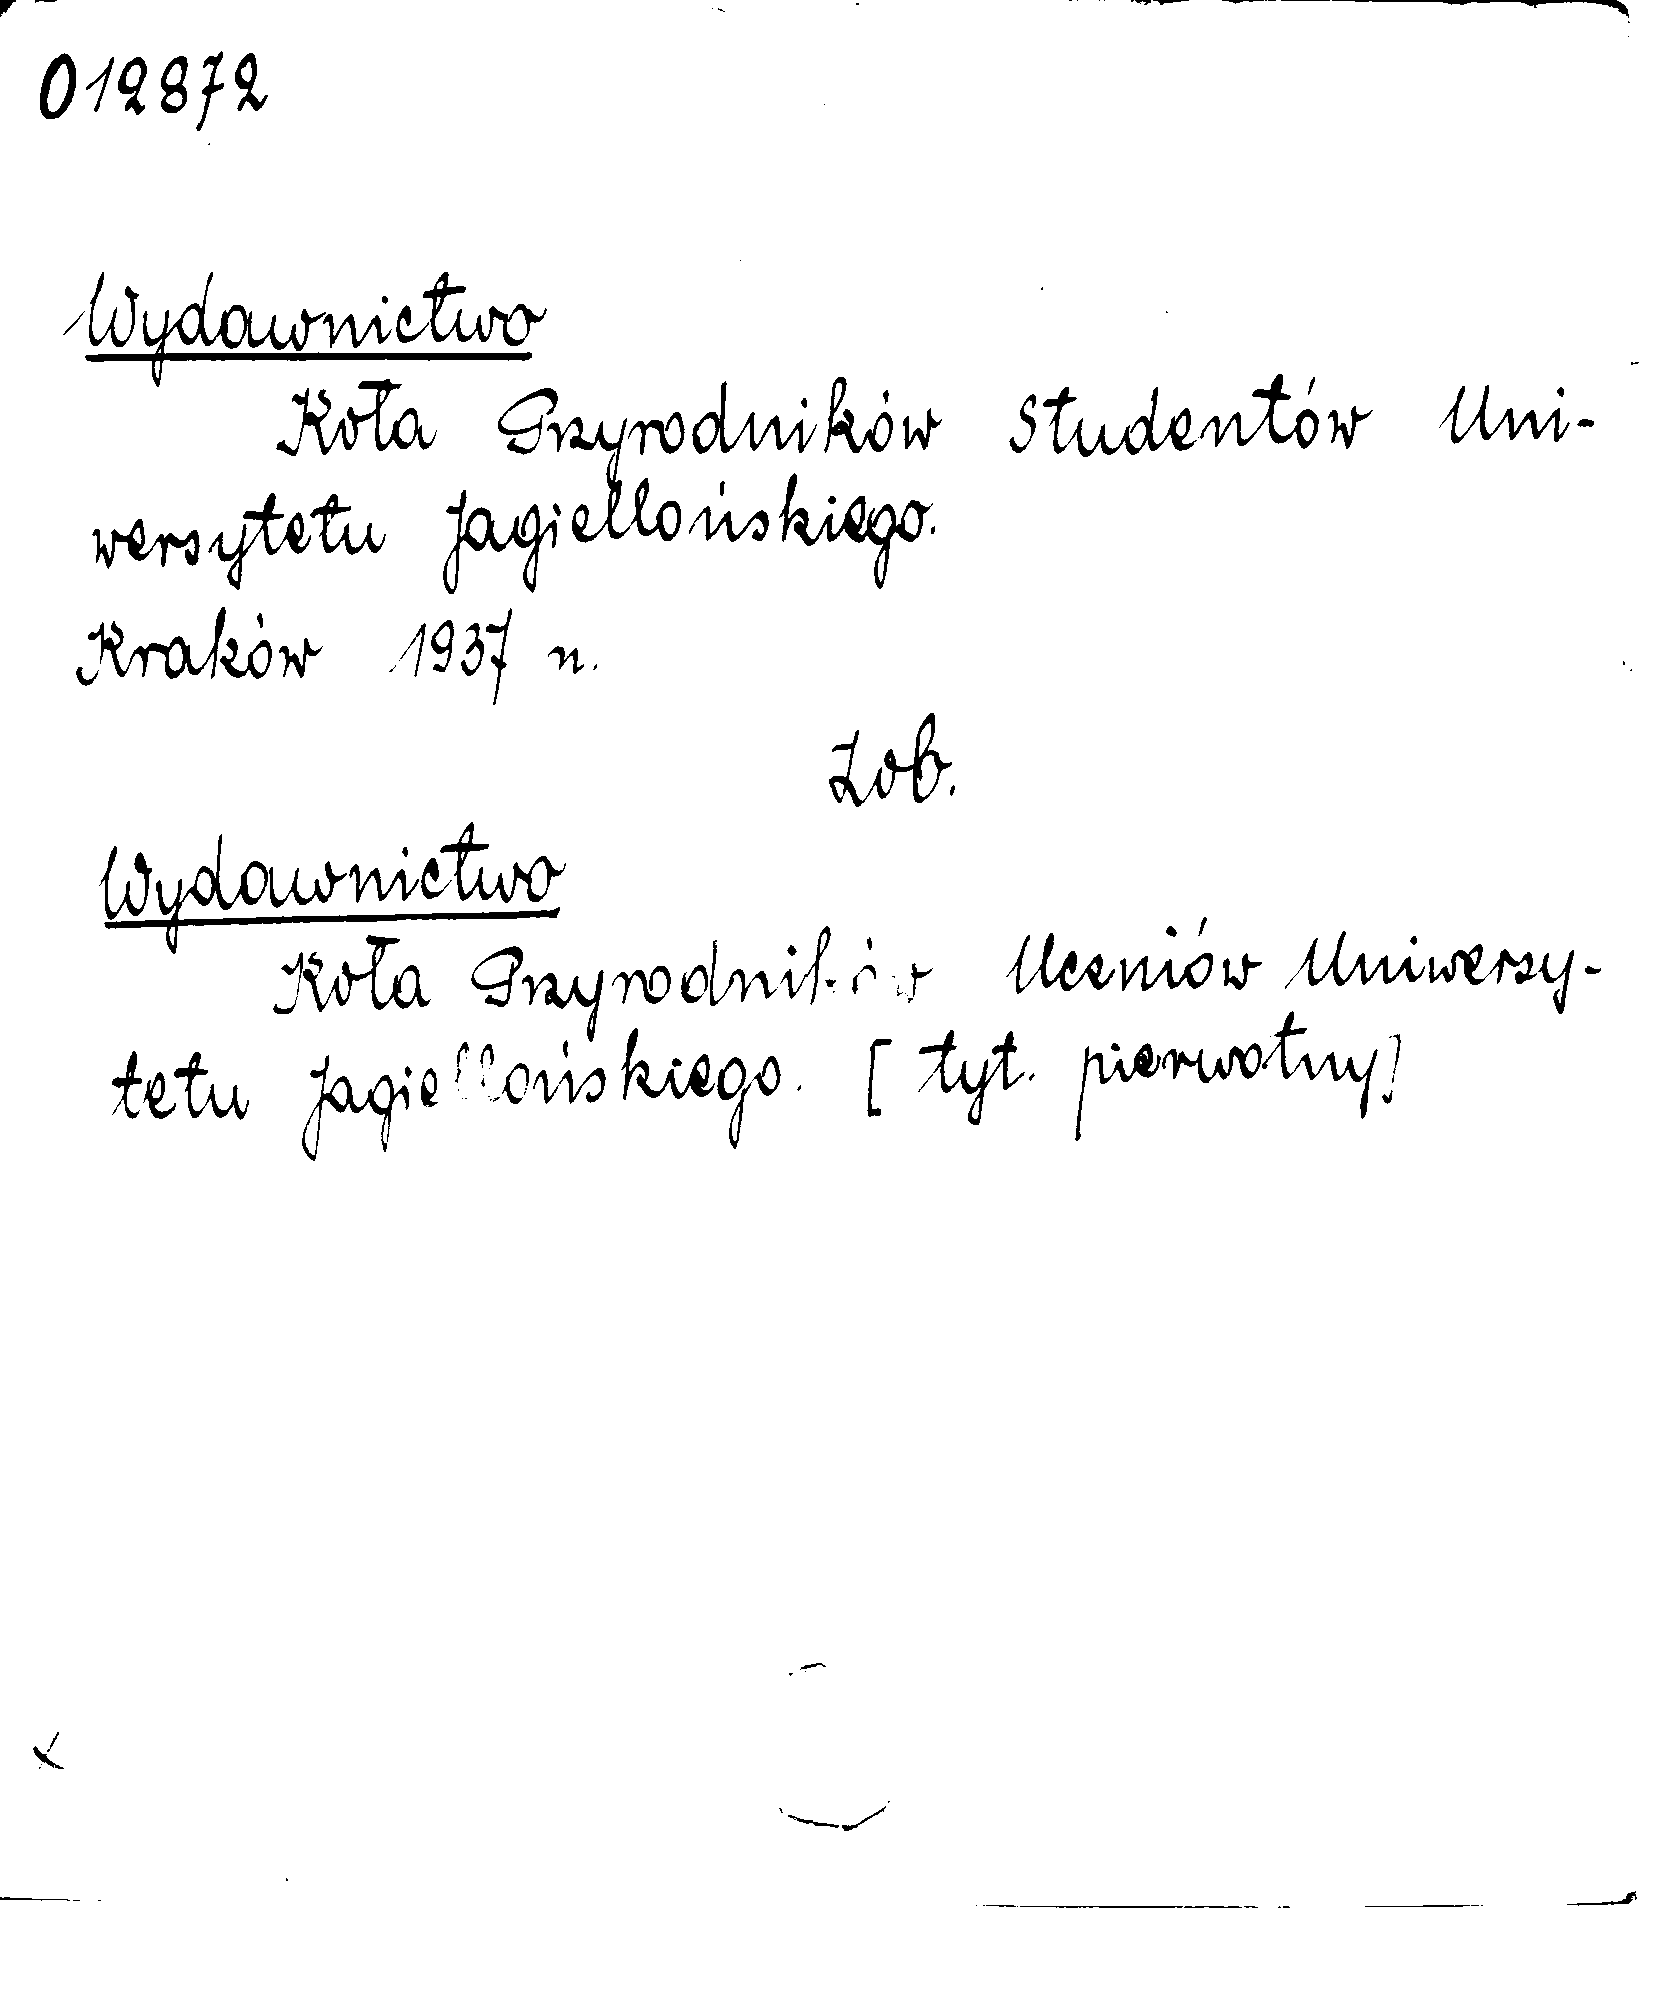 012872
Wydawnictwo
Koła Przyrodników Studentów Uni-
wersytetu Jagiellońskiego.
Kraków 1937 n.
Zob.
Wydawnictwo
Koła Przyrodników Uczniów Uniwersy-
tetu Jagiellońskiego. [tyt. pierwotny]